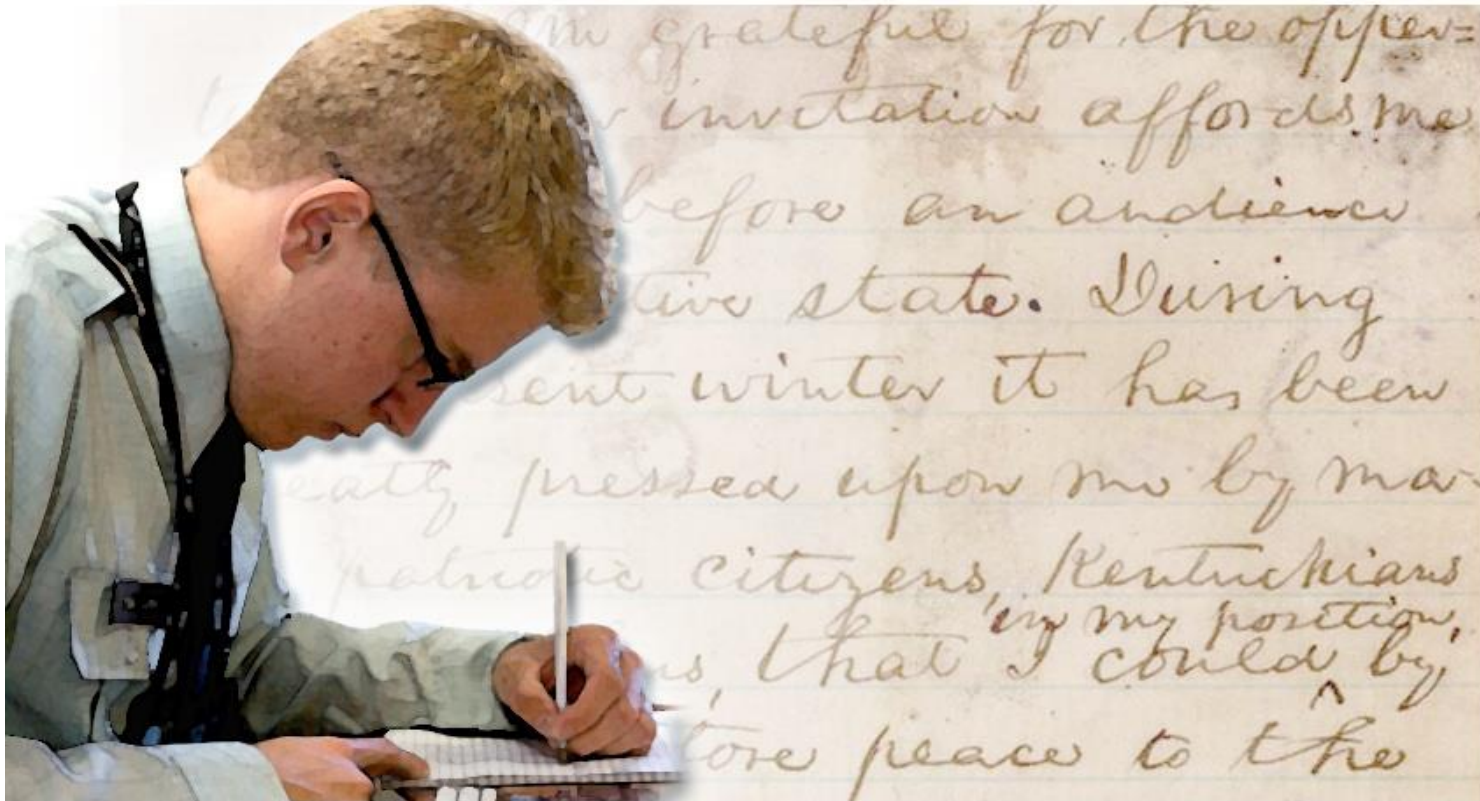 m grateful for the opper=
invitation affords me
before an audience
tive state. During
sent winter it has been
eatly pressed upon me by ma-
patriotic citizens, Kentuckians
in my position,
s, that I could by
^
tore peace to the